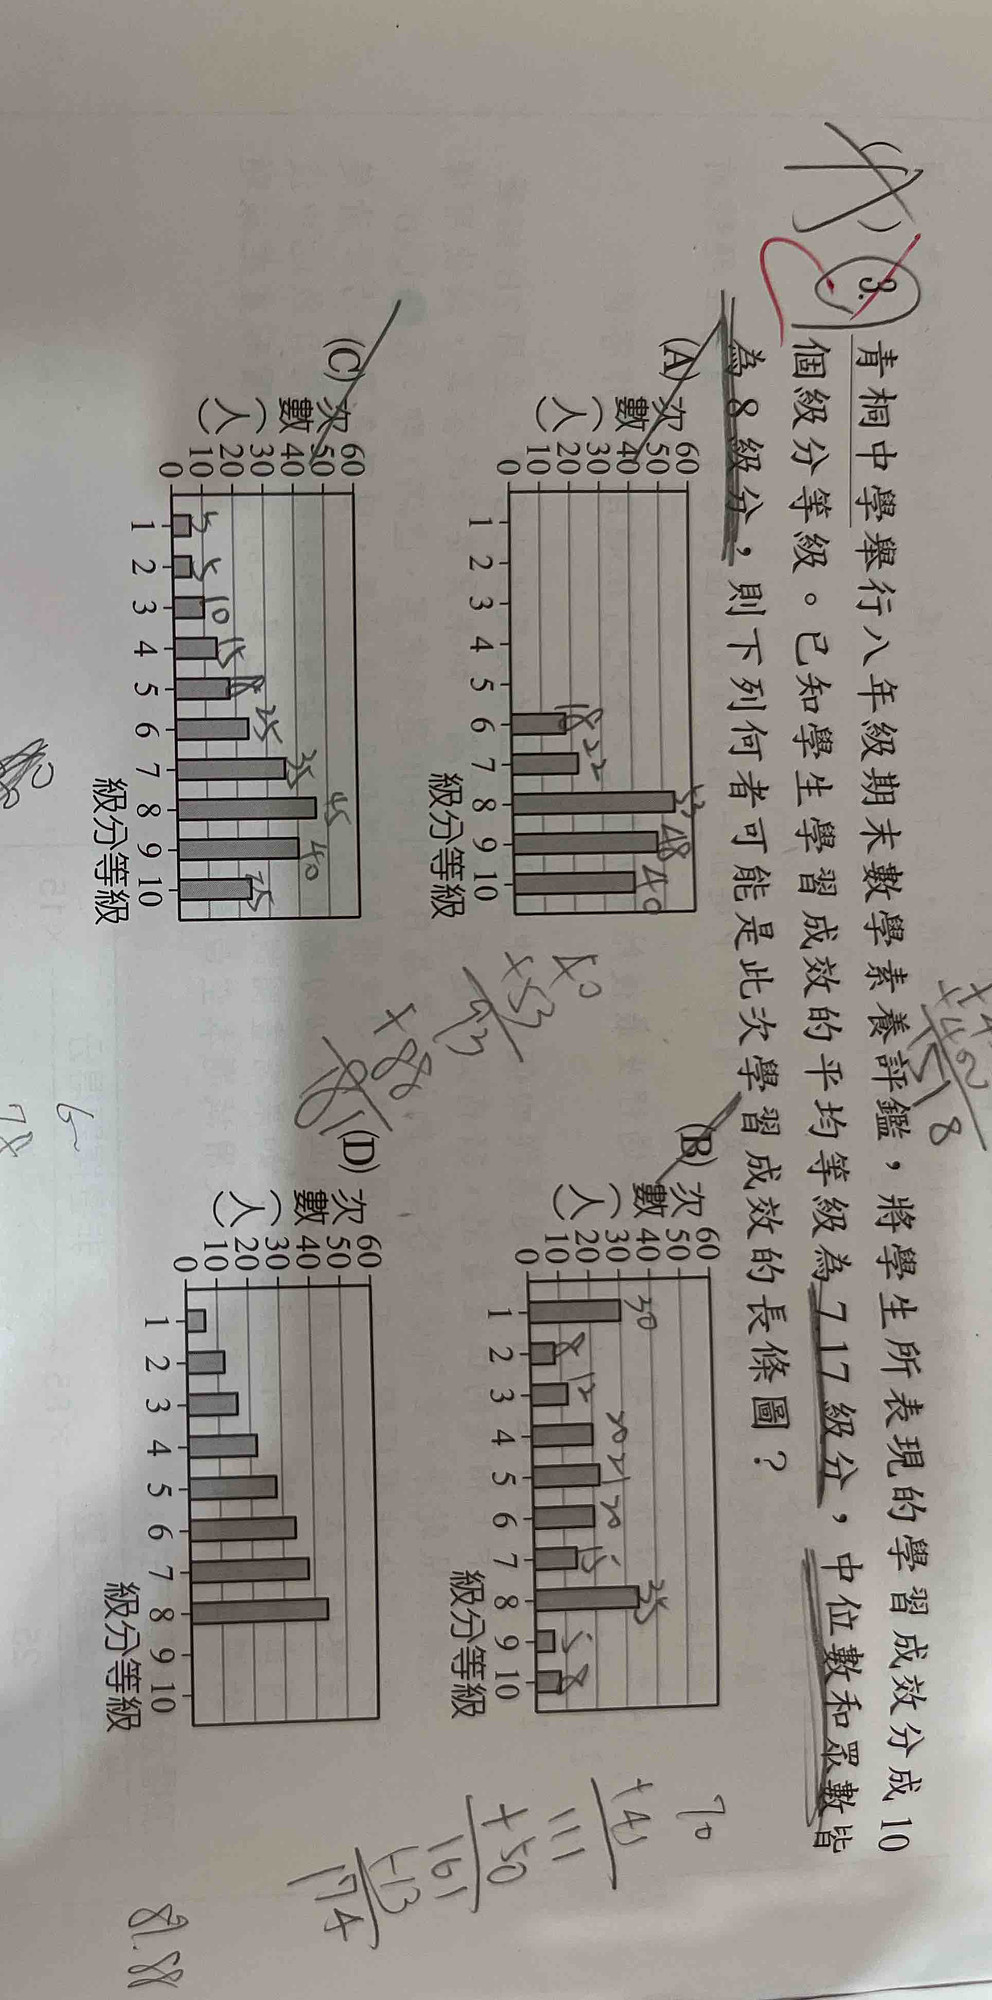 3. 青桐中學舉行八年級期末數學素養評鑑，將學生所表現的學習成效分成10
個級分等級。已知學生學習成效的平均等級為7.17級分，中位數和眾數皆
為8級分，則下列何者可能是此次學習成效的長條圖？
(A)
次數（人）
60
50
40
30
20
10
0
18 22 53 48 40
1 2 3 4 5 6 7 8 9 10
級分等級
(B)
次數（人）
60
50
40
30
20
10
0
30 8 12 20 21 20 15 35 5 8
1 2 3 4 5 6 7 8 9 10
級分等級
(C)
次數（人）
60
50
40
30
20
10
0
5 5 10 15 18 25 35 45 40 25
1 2 3 4 5 6 7 8 9 10
級分等級
(D)
次數（人）
60
50
40
30
20
10
0
1 2 3 4 5 6 7 8 9 10
級分等級
70
+41
111
+50
161
+13
174
87.88